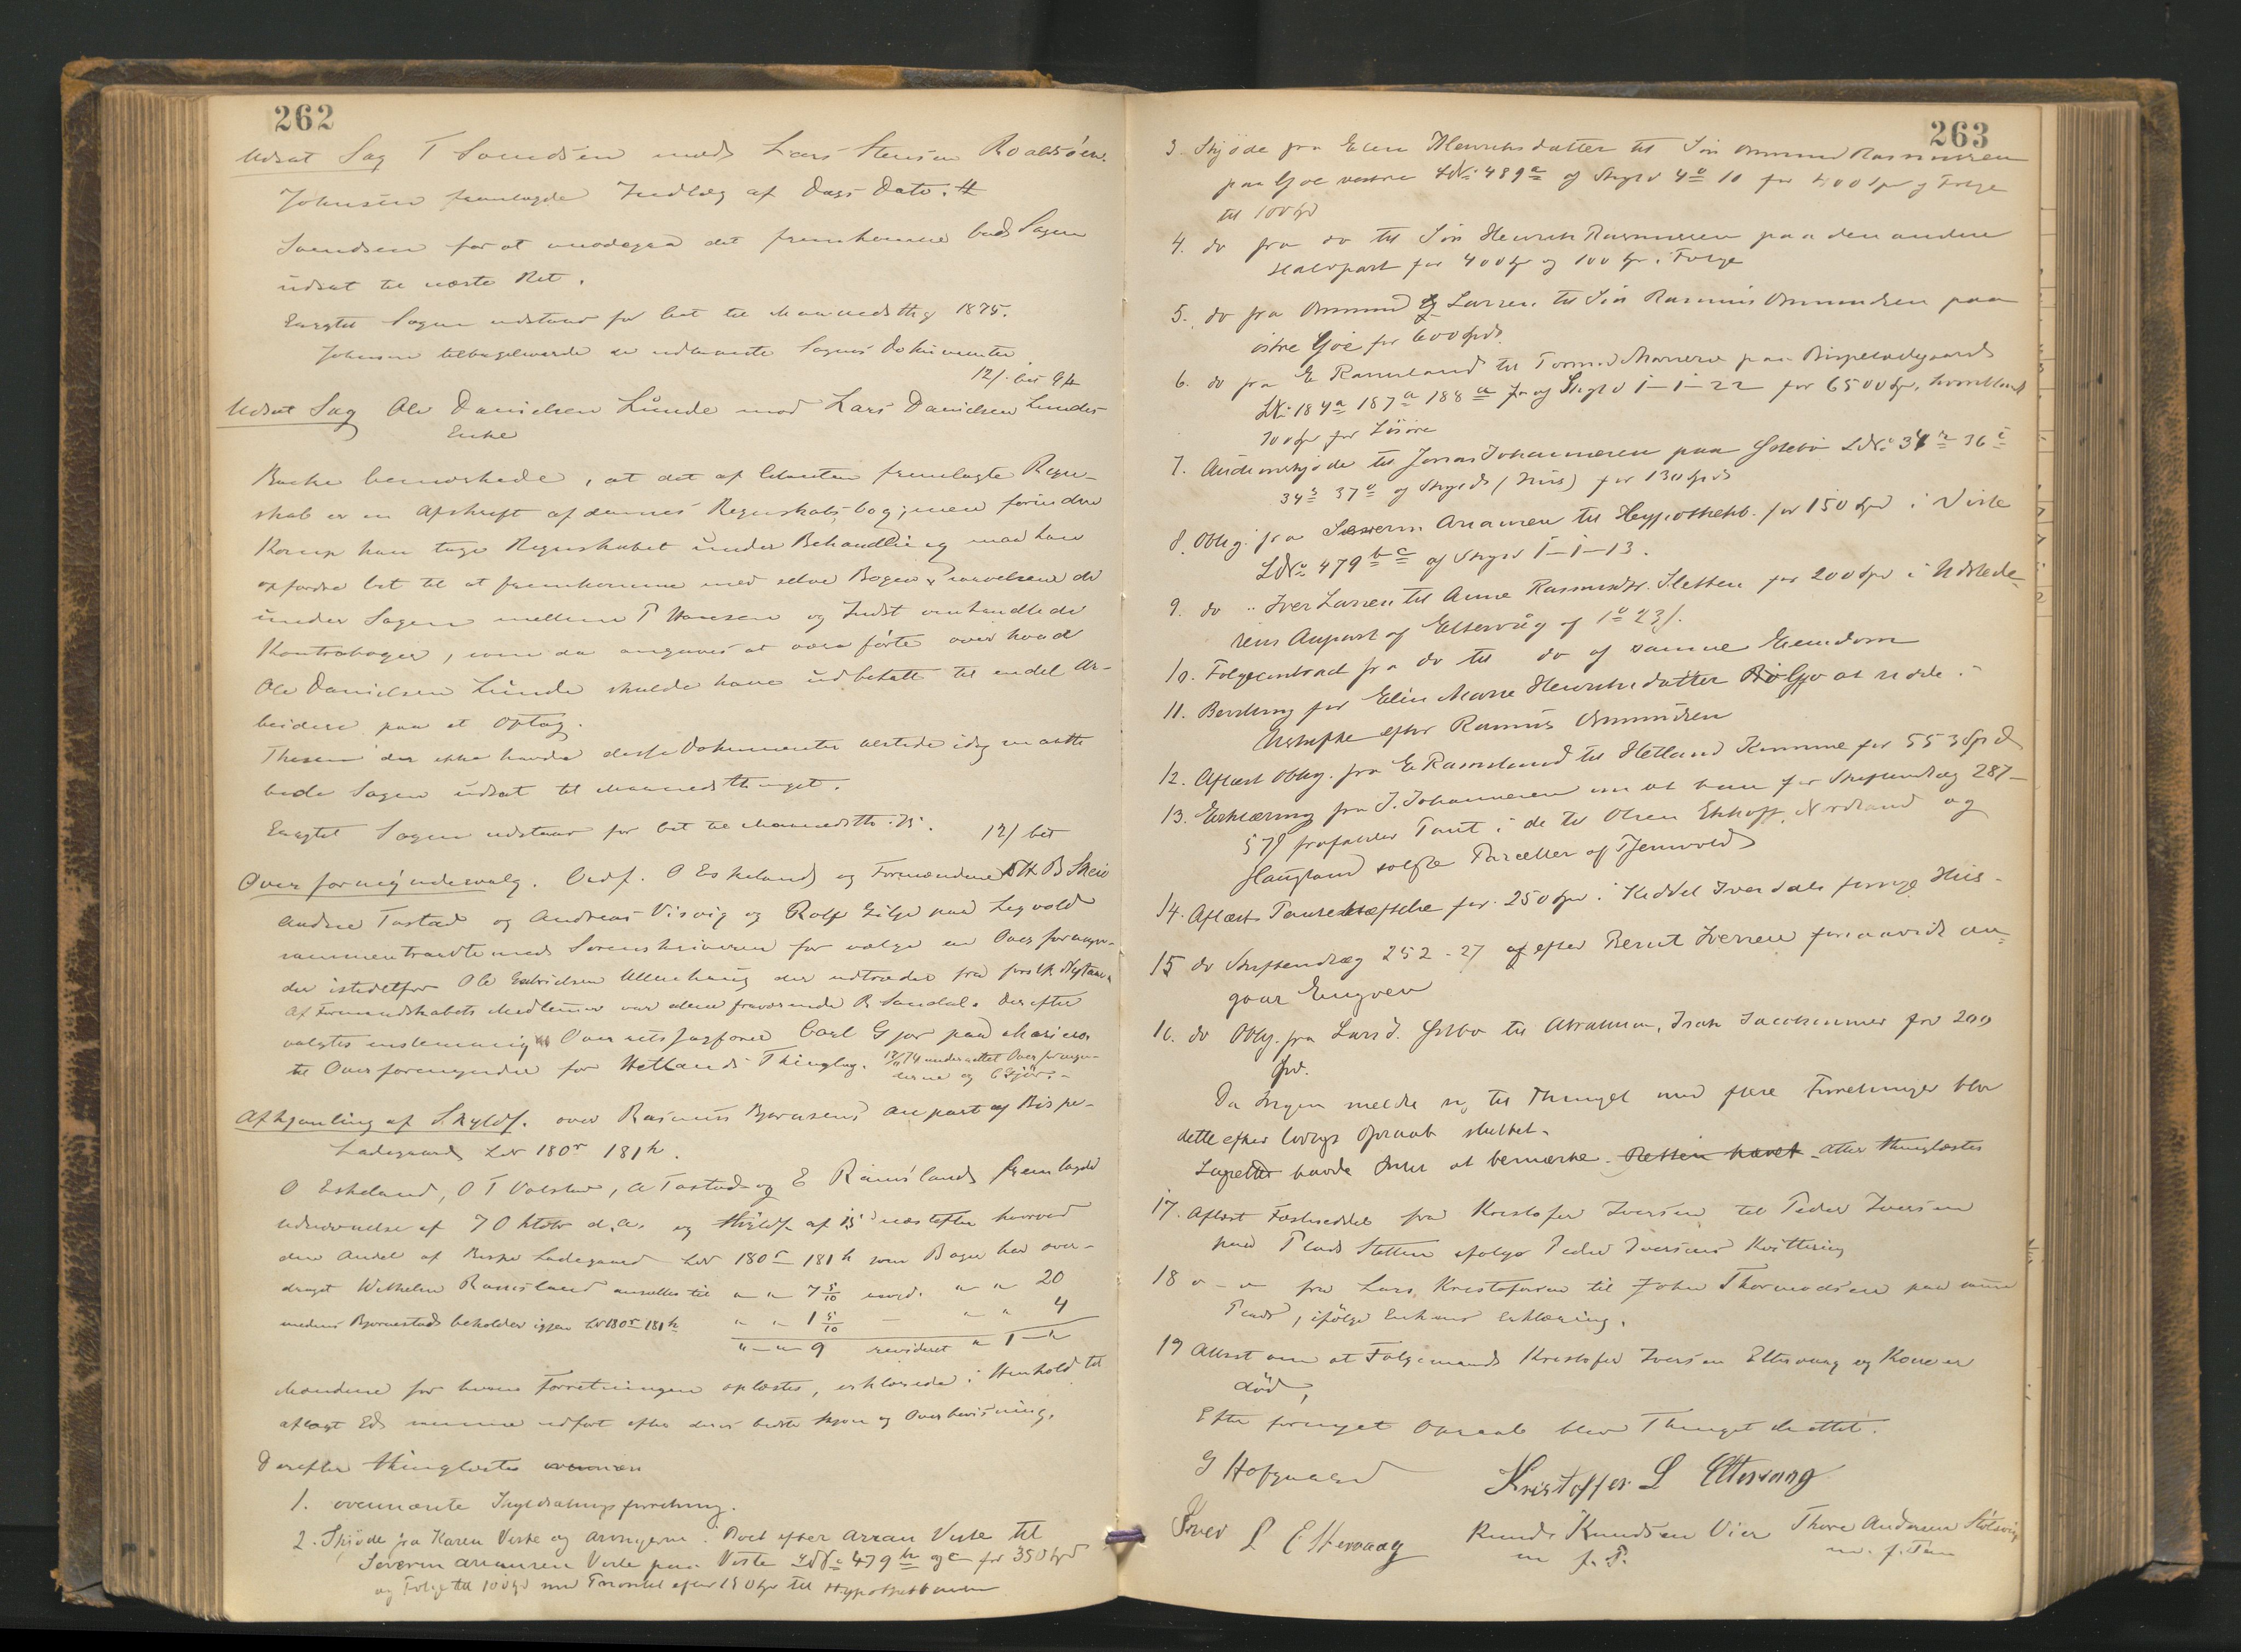 262
Udsat Sag T Svendsen mod Lars Stensen Roaldsøen.
Johnsen fremlagde Indlæg af Dags Dato. #
Svendsen for at imødegaa det fremkomne bad Sagen
udsat til næste Ret.
Eragtet Sagen udstaar for bet til Maanedsthg 1875.
Johnsen tilbageleverede de udlaante Sagens Dokumenter
12/ bet
Udsat Sag Ole Danielsen Lunde mod Lars Danielsen Lundes
Enke
Backe bemærkede, at det af Citanten fremlagte Regn-
skab er en Afskrift af dennes Regnskabsbog; men forinden
kan tage Regnskabet under Behandling maa han
opfordre bet til at fremkomme med selve Bogen de
under Sagen mellem P Hansen og Indst omhandlede
Kontrabøger, som da angaves at være førte over hvad
Ole Danielsen Lunde skulde have udbetalt til endel Ar-
beidere paa et Optag.
Thesen der ikke havde disse Dokumenter tilstede idag maatte
bede Sagen udsat til Maanedsthinget.
Eragtet Sagen udstaar for bet til Maanedsth. 75. 12/ bet
Overformyndervalg. Ordf. O Eskeland og Formændene H B Skeie
Andreas Tastad og Andreas Visvig og Rolf Gilje paa Legvold
sammentraadte med Sorenskriveren for vælge en Overformyn-
der istedetfor Ole Gabrielsen Ullenhaug der udtræder fra først. Nytaar.
Af Formandskabets Medlemmer var alene fraværende R Sandal. Derefter
valgtes enstemmig Overretssagfører Carl Gjør paa Mariero
til Overformynder for Hetlands Thinglag. 12/11 74 underrettet Overformyn-
derne og C Gjør.-
Afhjemling af Skyldf. over Rasmus Bjørnsens anpart af Bispe-
Ladegaard LN 180r 181h.
O Eskeland, O T Volstad, A Tastad og E Ramslands fremlagde
Udnævnelse af 7 Oktobr d.A. og Skyldf. af 15 næstefter hvorved
den Andel af Bispe Ladegaard LN 180r 181h som Bager har over-
draget Wilhelm Ramsland ansattes til " " 7 5/10 revid. " " 20
medens Bjørnestad beholder igjen LN 180r 181h " " 1 5/10 — " " 4
" — " 9 revideret " 1 — "
Mændene for hvem Forretningen oplæstes, erklærede i Henhold til
aflagt Ed samme udført efter deres bedste Skjøn og Overbevisning.
Derefter thinglæstes
1. ovennævnte Skyldsætningsforretning.
2. Skjøde fra Karen Viste og Arvingerne i Boet efter Arian Viste til
Severin Ariansen Viste paa Viste LN: 479 b og c for 350 spd
og Folge til 100 spd med Prioritet efter 150 spd til Hypothekbanken
263
3. Skjøde fra Elen Henriksdatter til Søn Ommund Rasmussen
paa Gjoe vestre LN: 489a af Skyld 4 o 10 for 400 spd og Folge
til 100 spd
4. do fra do til Søn Henrik Rasmussen paa den anden
Halvpart for 400 spd og 100 spd i Folge
5. do fra Ommund Larsen til Søn Rasmus Ommundsen paa
østre Gjoe for 600 spd.
6. do fra E Ramsland til paa Bispeladegaard
LN: 184a 187a 188a af Skyld 1-1-22 for 6500 spd, hvoriblandt
700 spd for Løsøre
7. Auctionsskjøde til Jonas Johannesen paa LN: 36i
37 af Skyld (Huus) for 130 spd
8. Oblig. fra Severin Ariansen til Hypothekb. for 150 spd i Viste
LN: 479 b c af Skyld 1-1-13.
9. do " Iver Larsen til Anne Rasmusdtr. Sletten for 200 spd i Udstede-
rens Anpart af Eltervåg af 1 o 23/.
10. Folgecontract fra do til do af samme Eiendom
11. Bevilling for Elin Marie Henriksdatter Gjo at sidde i
Uskiftet efter Rasmus Ommundsen
12. Aflæst Oblig. fra E Ramsland til Hetland Kommune for 553 Spd
13. Erklæring fra J. Johannesen om at han for Skifteudlæg 287-
57/ frafalder Pant i de til Olsen Ekhoff, Nordland og
Haugland solgte Parceller af Tjensvold
14. Aflæst Panteheftelse for 250 spd i Keddel Iversdals forrige Huus.
15 do Skifteudlæg 252-27 efter Bernt Iversen forsaavidt an-
gaar Engøen
16. do Oblig. fra Lars J. til Abraham, Isak Jacobsønner for 200
spd.
Da Ingen meldte sig til Thinget med flere Forretninger blev
dette efter lovligt Opraab sluttet.
Lagrettet havde Intet at bemærke. Retten hævet. Atter thinglæstes
17. Aflæst Fæsteseddel fra Kristofer Iversen til Peder Iversen
paa Plads Sletten ifølge Peder Iversens Kvittering
18 " - " fra Lars Kristofersen til John Thormodsen paa samme
Plads, ifølge Enkens Erklæring.
19 Attest om at Folgemand Kristofer Iversen Eltervaag og Kone er
død,
Efter fornyet Opraab blev Thinget sluttet.
G Hofgaard Kristoffer L Eltervaag
Iver L Eltervaag Knud Knudsen Vier Thore Andersen Stølsvig
m f. P. m. f. Pen